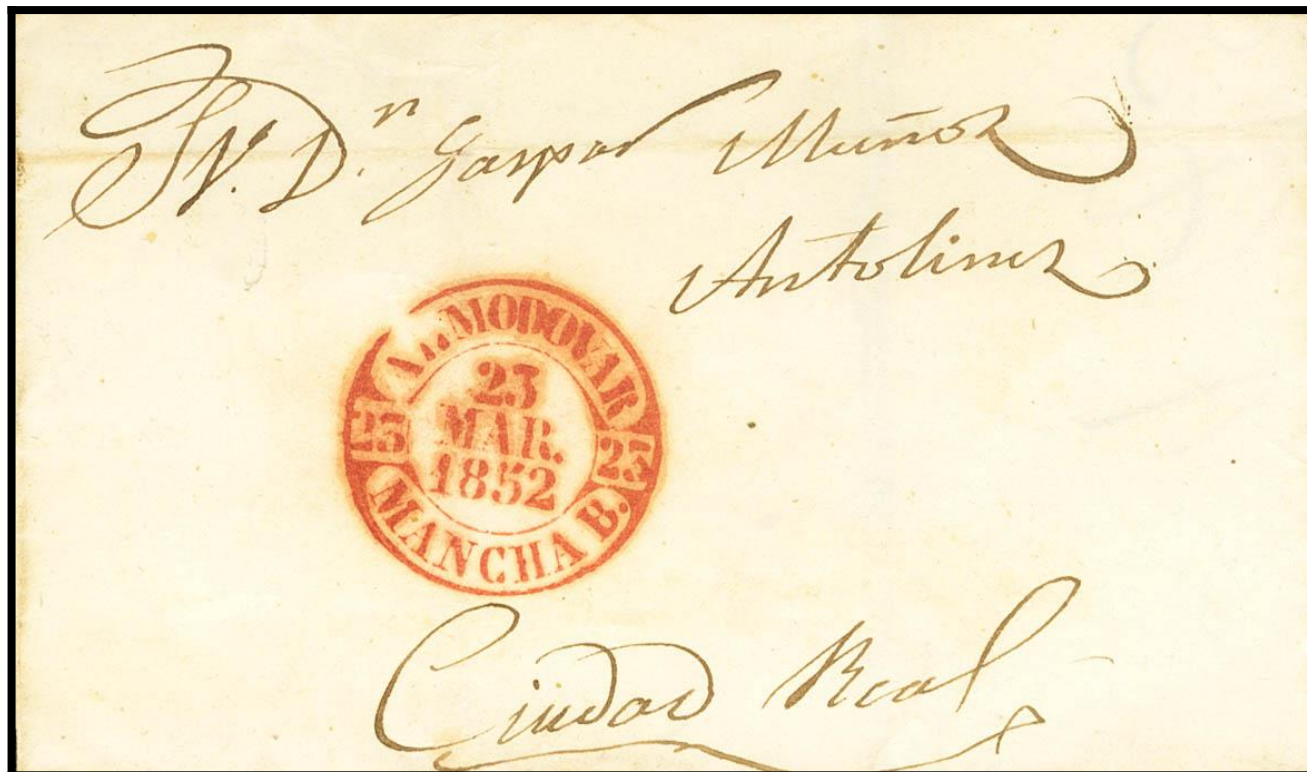 Sr. D.n Gaspar Muñoz
Antolinez
ALMODOVAR
23
MAR.
1852
25 25
MANCHA B.
Ciudad Real